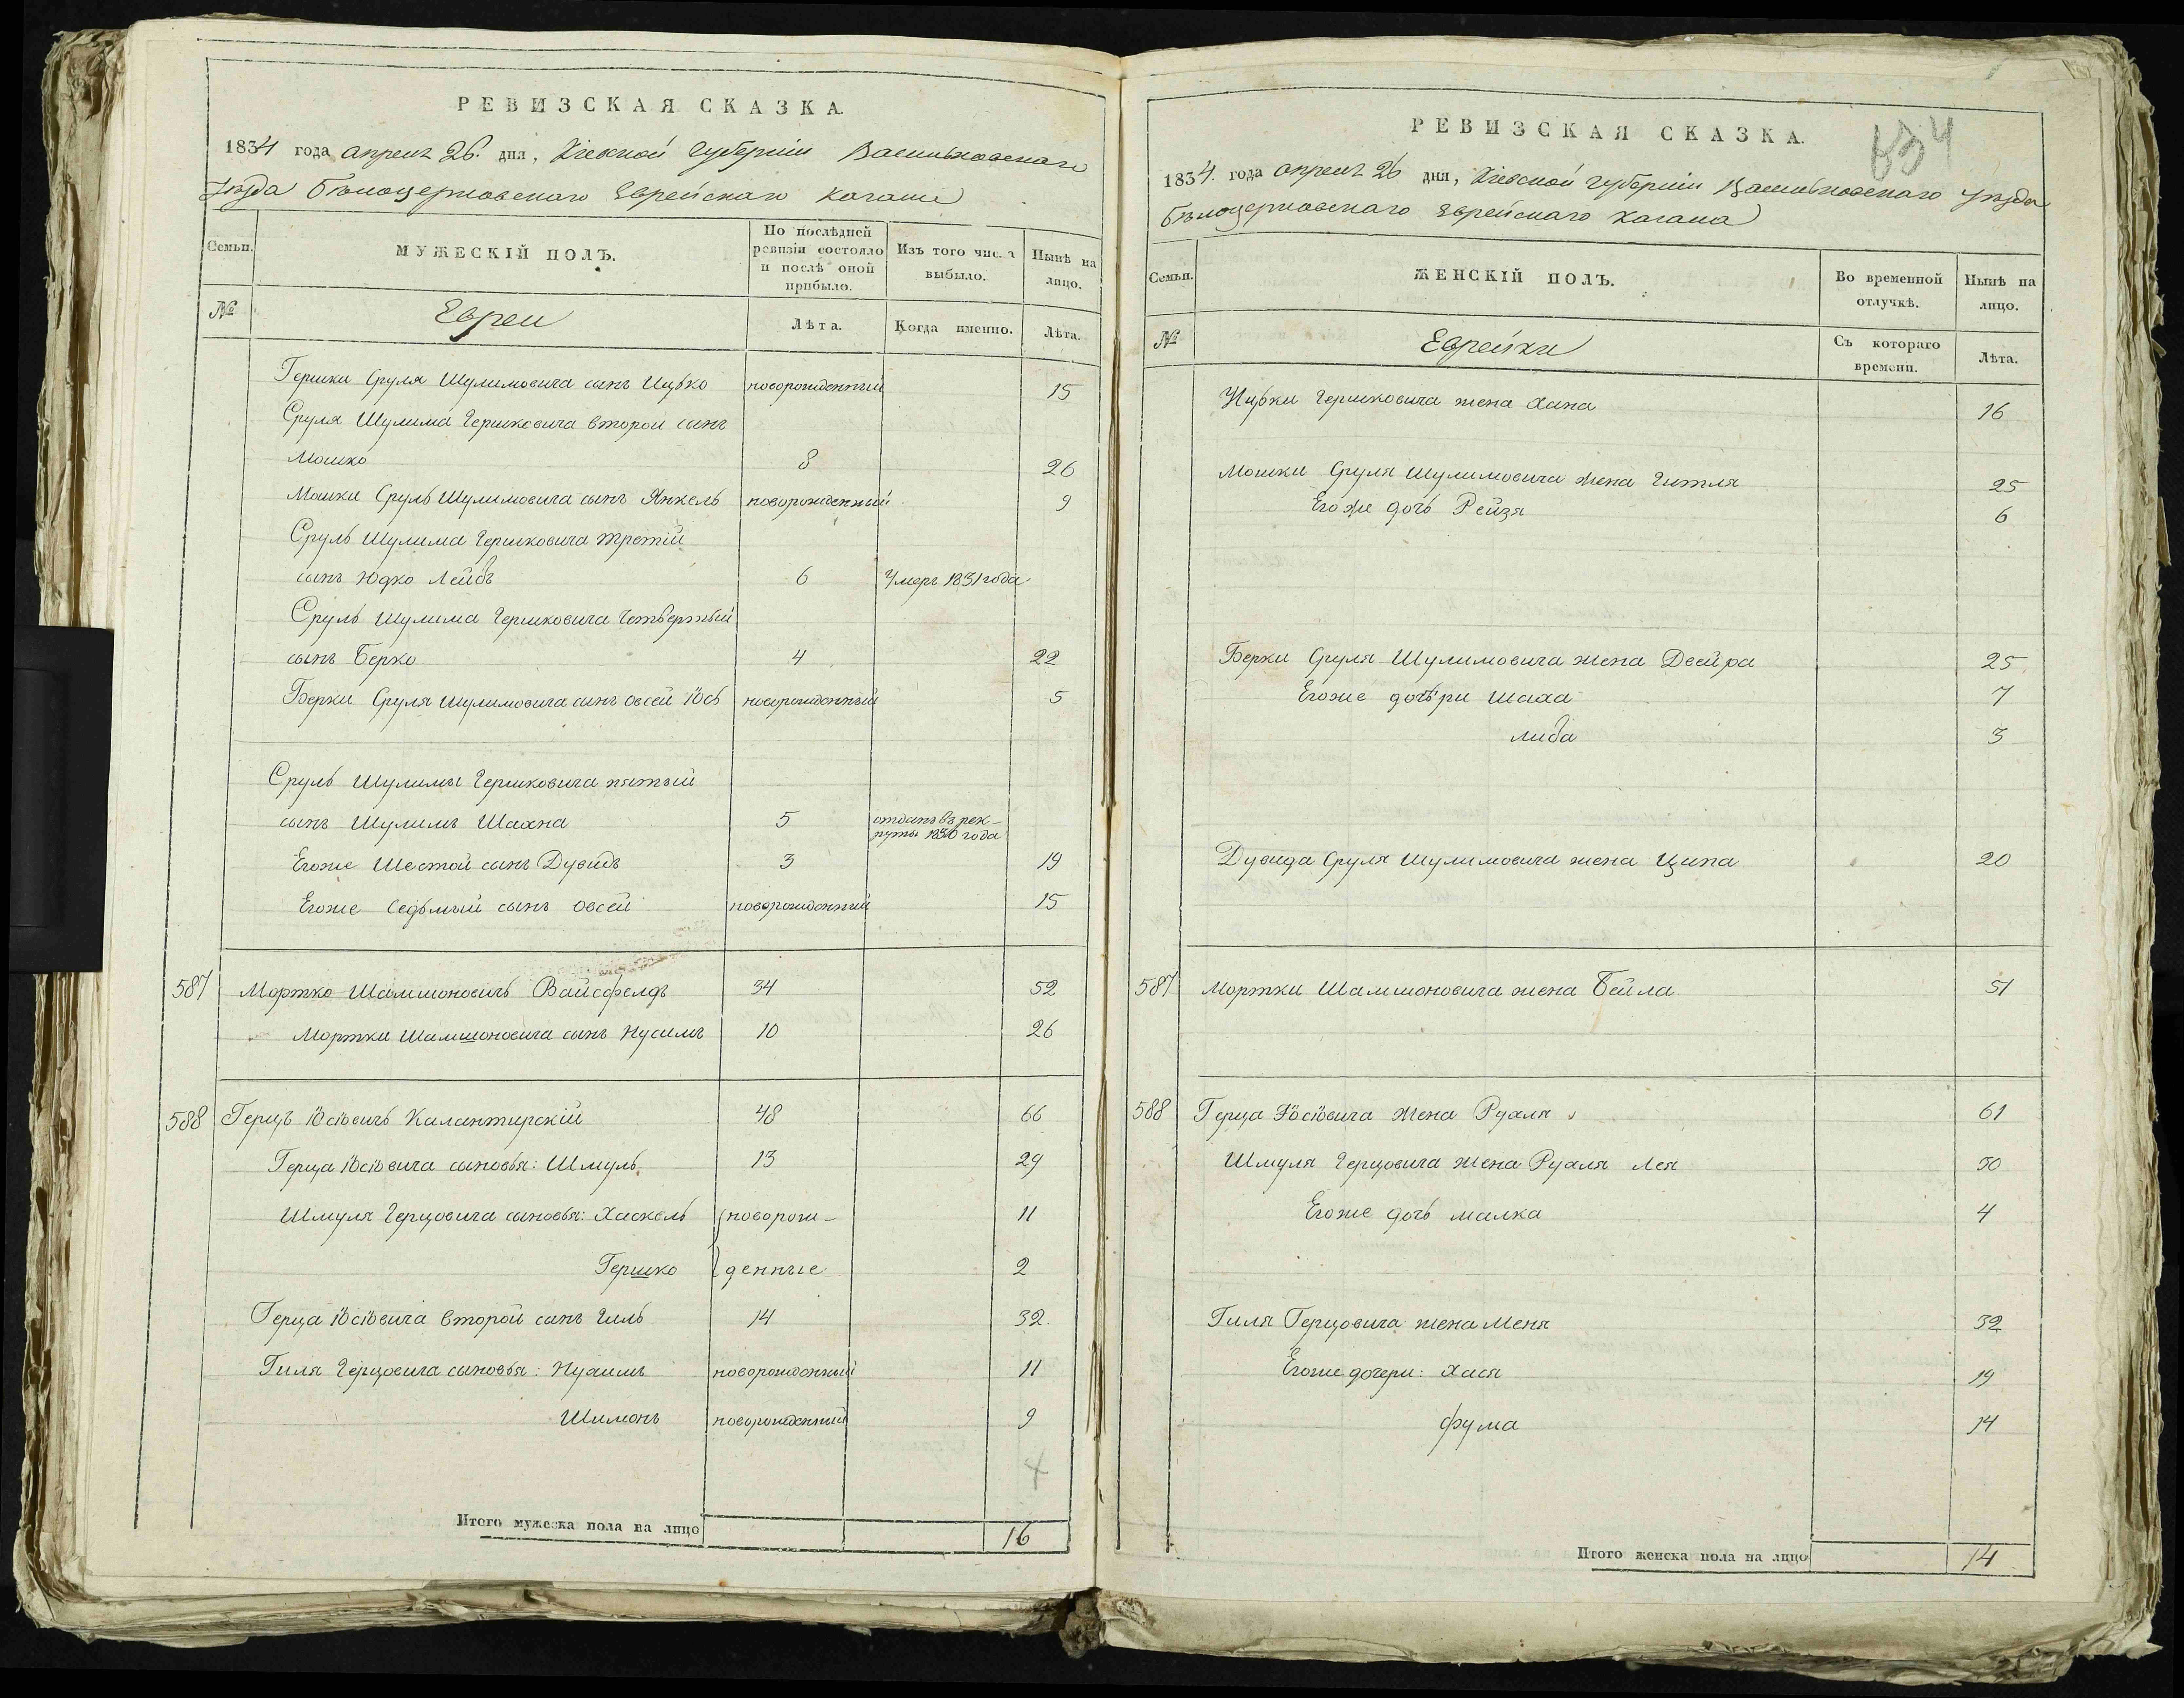 РЕВИЗСКАЯ СКАЗКА.
1834 года апреля 26. дня, Кіевской Губерніи Васильковскаго
Уѣзда Бѣлоцерковскаго Еврейскаго Кагала
Семьи. МУЖЕСКІЙ ПОЛЪ. По послѣдней ревизіи состояло и послѣ оной прибыло. Изъ того числа выбыло. Нынѣ на лицо.
№ Евреи Лѣта. Когда именно. Лѣта.
Гершки Сруля Шулимовича сынъ Ицько новорожденный 15
Сруля Шулима Гершковича второй сынъ
Мошко 8 26
Мошки Сруль Шулимовича сынъ Янкель новорожденный 9
Сруль Шулима Гершковича третій
сынъ Юдко Лейбъ 6 Умеръ 1831 года
Сруль Шулима Гершковича Четвертый
сынъ Берко 4 22
Берки Сруля Шулимовича сынъ Овсей Іось новорожденный 5
Сруль Шулимы Гершковича пятый
сынъ Шулимъ Шахна 5 отданъ в рек-
руты 1830 года
Егоже Шестой сынъ Дувидъ 3 19
Егоже Седьмый сынъ Овсей новорожденный 15
587 Мортко Шамшоновичъ Вайсфелдъ 34 52
Мортки Шамшоновича сынъ Нусимъ 10 26
588 Герцъ Іосіовичъ Калантирскій 48 66
Герца Іосіовича сыновья: Шмуль 13 29
Шмуля Герцовича сыновья: Хаскель новорож- 11
Гершко денные 2
Герца Іосіовича второй сынъ Гиль 14 32.
Гиля Герцовича сыновья: Нухимъ новорожденный 11
Шимонъ новорожденный 9
4
Итого мужеска пола на лицо 16
РЕВИЗСКАЯ СКАЗКА.
634
1834. года апреля 26 дня, Кіевской Губерніи Васильковскаго Уѣзда
Бѣлоцерковскаго Еврейскаго Кагала
Семьи. ЖЕНСКІЙ ПОЛЪ. Во временной отлучкѣ. Нынѣ на лицо.
№ Еврейки Съ котораго времени. Лѣта.
Ицьки Гершковича жена Хана 16
Мошки Сруля Шулимовича жена Гитля 25
Егоже дочь Рейзя 6
Берки Сруля Шулимовича жена Двейра 25
Егоже дочѣри Шаха 7
Либа 3
Дувида Сруля Шулимовича жена Ципа 20
587 Мортки Шамшоновича жена Бейла 51
588 Герца Іосіовича жена Рухля 61
Шмуля Герцовича жена Рухля Лея 30
Егоже дочь Малка 4
Гиля Герцовича жена Меня 32
Егоже дочери: Хася 19
Фума 14
Итого женска пола на лицо 14